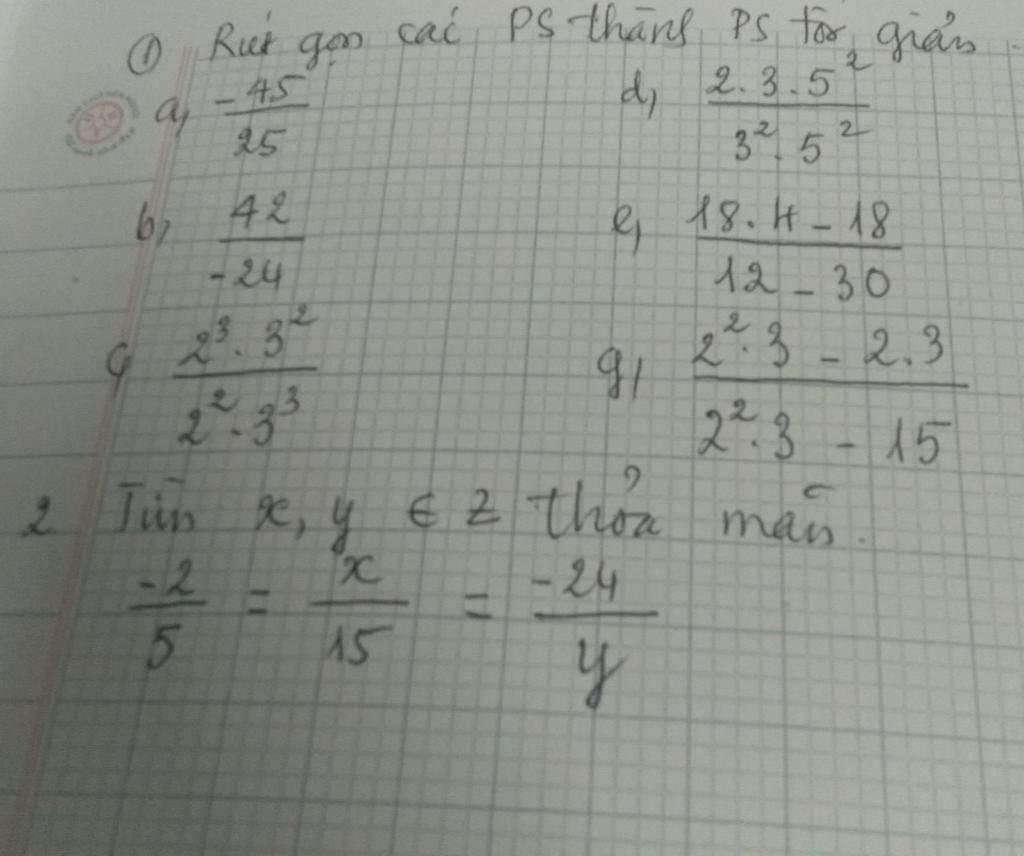 ① Rút gọn các PS thành PS tối giản.
a, -45/25 d, 2.3.5²/3².5²
b, 42/-24 e, 18.4-18/12-30
c, 2³.3²/2².3³ g, 2².3-2.3/2².3-15
2 Tìm x, y ∈ Z thỏa mãn.
-2/5 = x/15 = -24/y